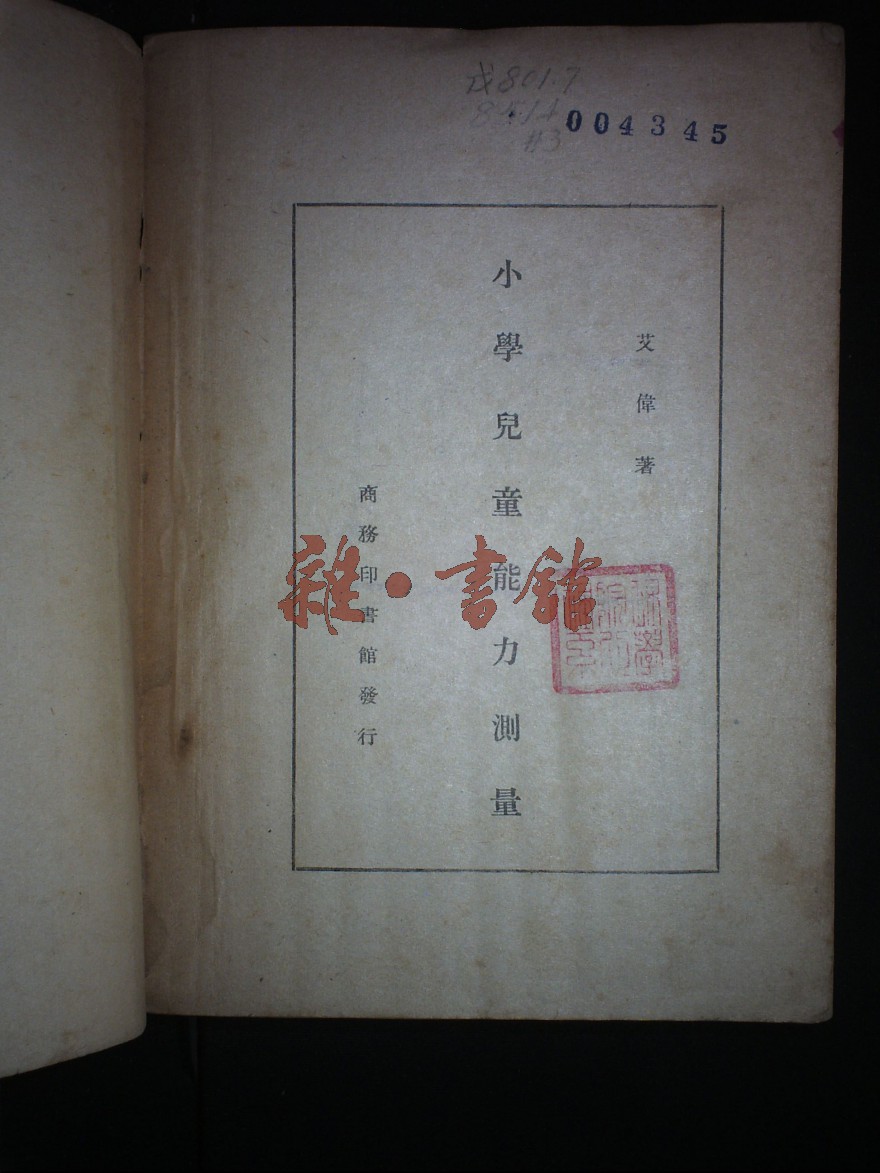 戌801.7
004345
艾偉著
小學兒童能力測量
商務印書館發行
雜·書館